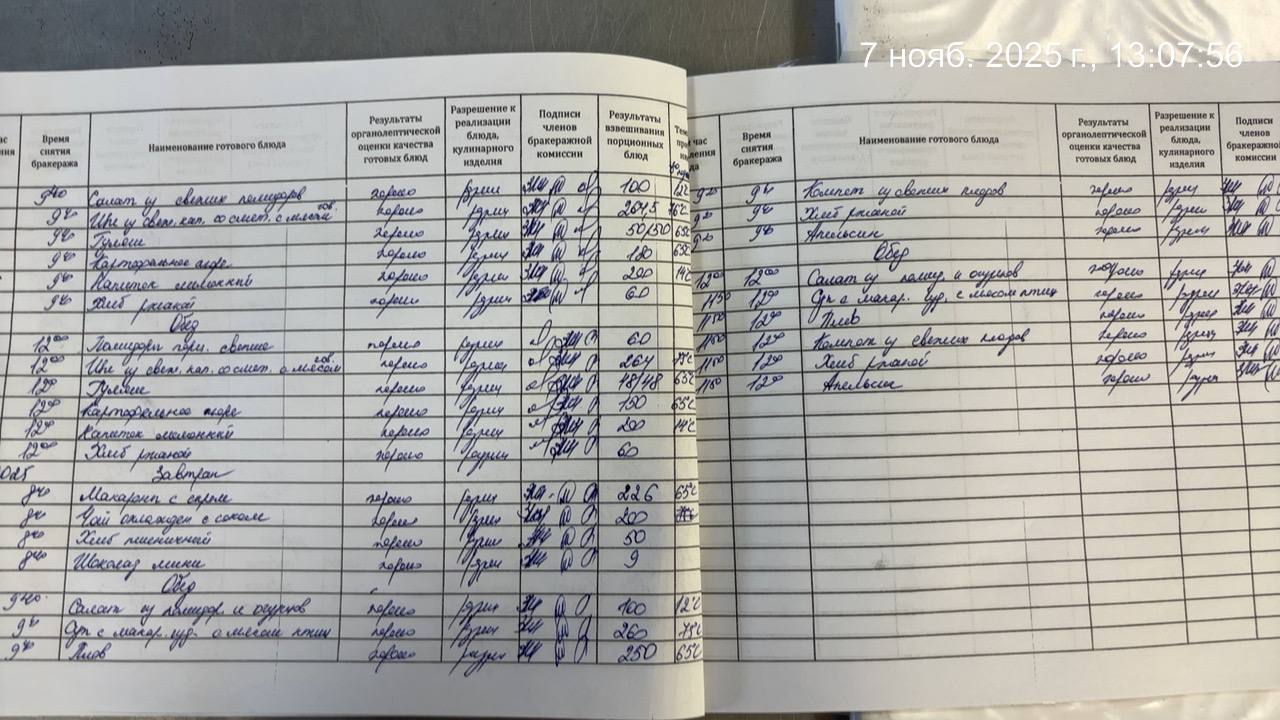 7 нояб. 2025 г., 13:07:56
Время снятия бракеража
Наименование готового блюда
Результаты органолептической оценки качества готовых блюд
Разрешение к реализации блюда, кулинарного изделия
Подписи членов бракеражной комиссии
Результаты взвешивания порционных блюд
9⁴⁰ Салат из свежих помидоров хорошо разреш 100 12°C
9⁴⁰ Щи из свеж. кап. со смет. с мясом гов. хорошо разреш 264,5 75°C
9⁴⁰ Гуляш хорошо разреш 50/50 65°C
9⁴⁰ Картофельное пюре хорошо разреш 180 65°C
9⁴⁰ Напиток лимонный хорошо разреш 200 14°C
9⁴⁰ Хлеб ржаной хорошо разреш 60
Обед
12⁰⁰ Помидоры порц. свежие хорошо разреш 60
12⁰⁰ Щи из свеж. кап. со смет. с мясом гов. хорошо разреш 264 75°C
12⁰⁰ Гуляш хорошо разреш 48/48 65°C
12⁰⁰ Картофельное пюре хорошо разреш 150 65°C
12⁰⁰ Напиток лимонный хорошо разреш 200 14°C
12⁰⁰ Хлеб ржаной хорошо разреш 60
025 Завтрак
8⁴⁰ Макароны с сыром хорошо разреш 226 65°C
8⁴⁰ Чай охлажден с соком хорошо разреш 200
8⁴⁰ Хлеб пшеничный хорошо разреш 50
8⁴⁰ Шоколад мини хорошо разреш 9
Обед
9⁴⁰ Салат из помидор. и огурцов хорошо разреш 100 12°C
9⁴⁰ Суп с макар. изд. с мясом птиц хорошо разреш 260 75°C
9⁴⁰ Плов хорошо разреш 250 65°C
Время снятия бракеража
Наименование готового блюда
Результаты органолептической оценки качества готовых блюд
Разрешение к реализации блюда, кулинарного изделия
Подписи членов бракеражной комиссии
9²⁰ 9⁴⁰ Компот из свежих плодов хорошо разреш
9²⁰ 9⁴⁰ Хлеб ржаной хорошо разреш
9²⁰ 9⁴⁰ Апельсин хорошо разреш
Обед
12⁰⁰ 12⁰⁰ Салат из помид. и огурцов хорошо разреш
11⁵⁰ 12⁰⁰ Суп с макар. изд. с мясом птиц хорошо разреш
11⁵⁰ 12⁰⁰ Плов хорошо разреш
11⁵⁰ 12⁰⁰ Компот из свежих плодов хорошо разреш
11⁵⁰ 12⁰⁰ Хлеб ржаной хорошо разреш
11⁵⁰ 12⁰⁰ Апельсин хорошо разреш